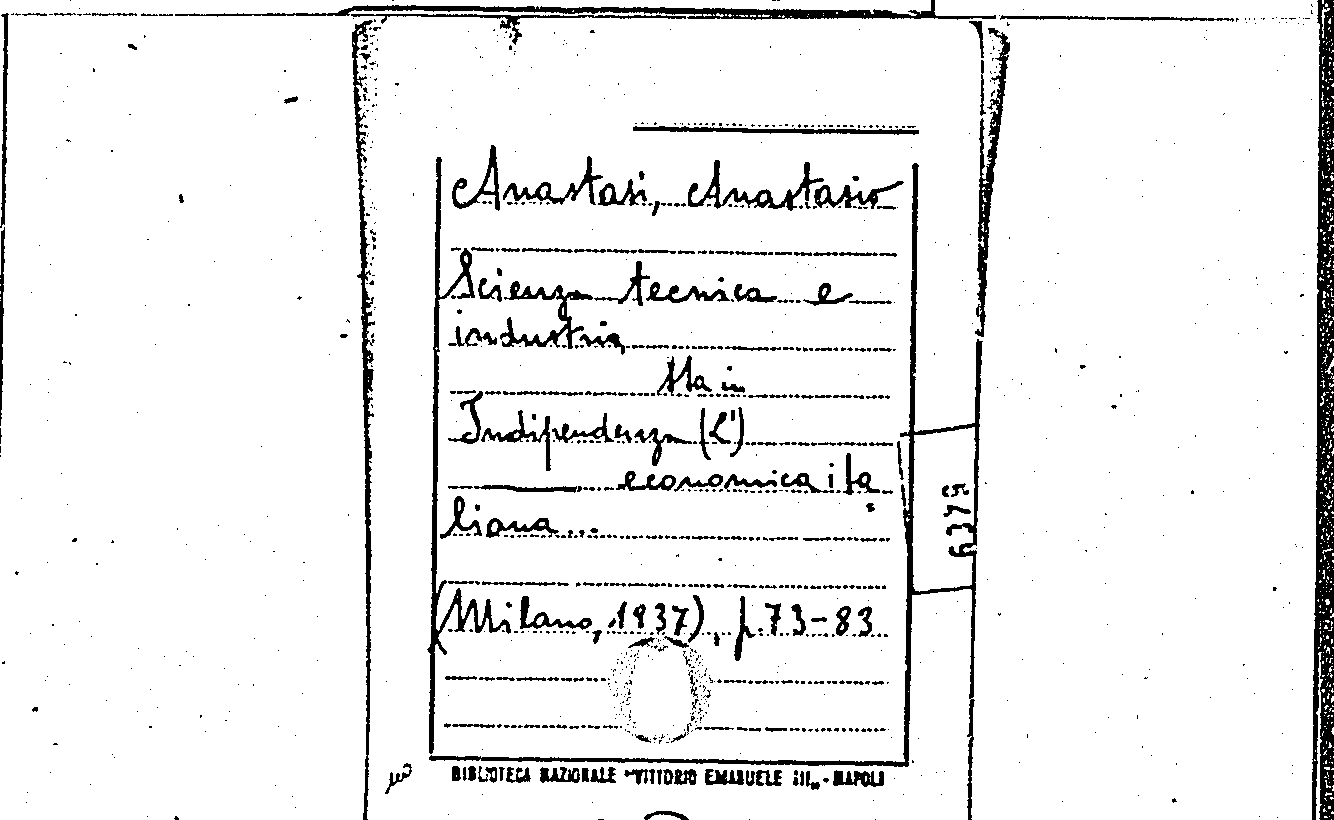 Anastasi, Anastasio
Scienza tecnica e
industria
Sta in
Indipendenza (L')
economica ita
liana...
(Milano, 1937), p. 73-83
6375
BIBLIOTECA NAZIONALE "VITTORIO EMANUELE III„ - NAPOLI